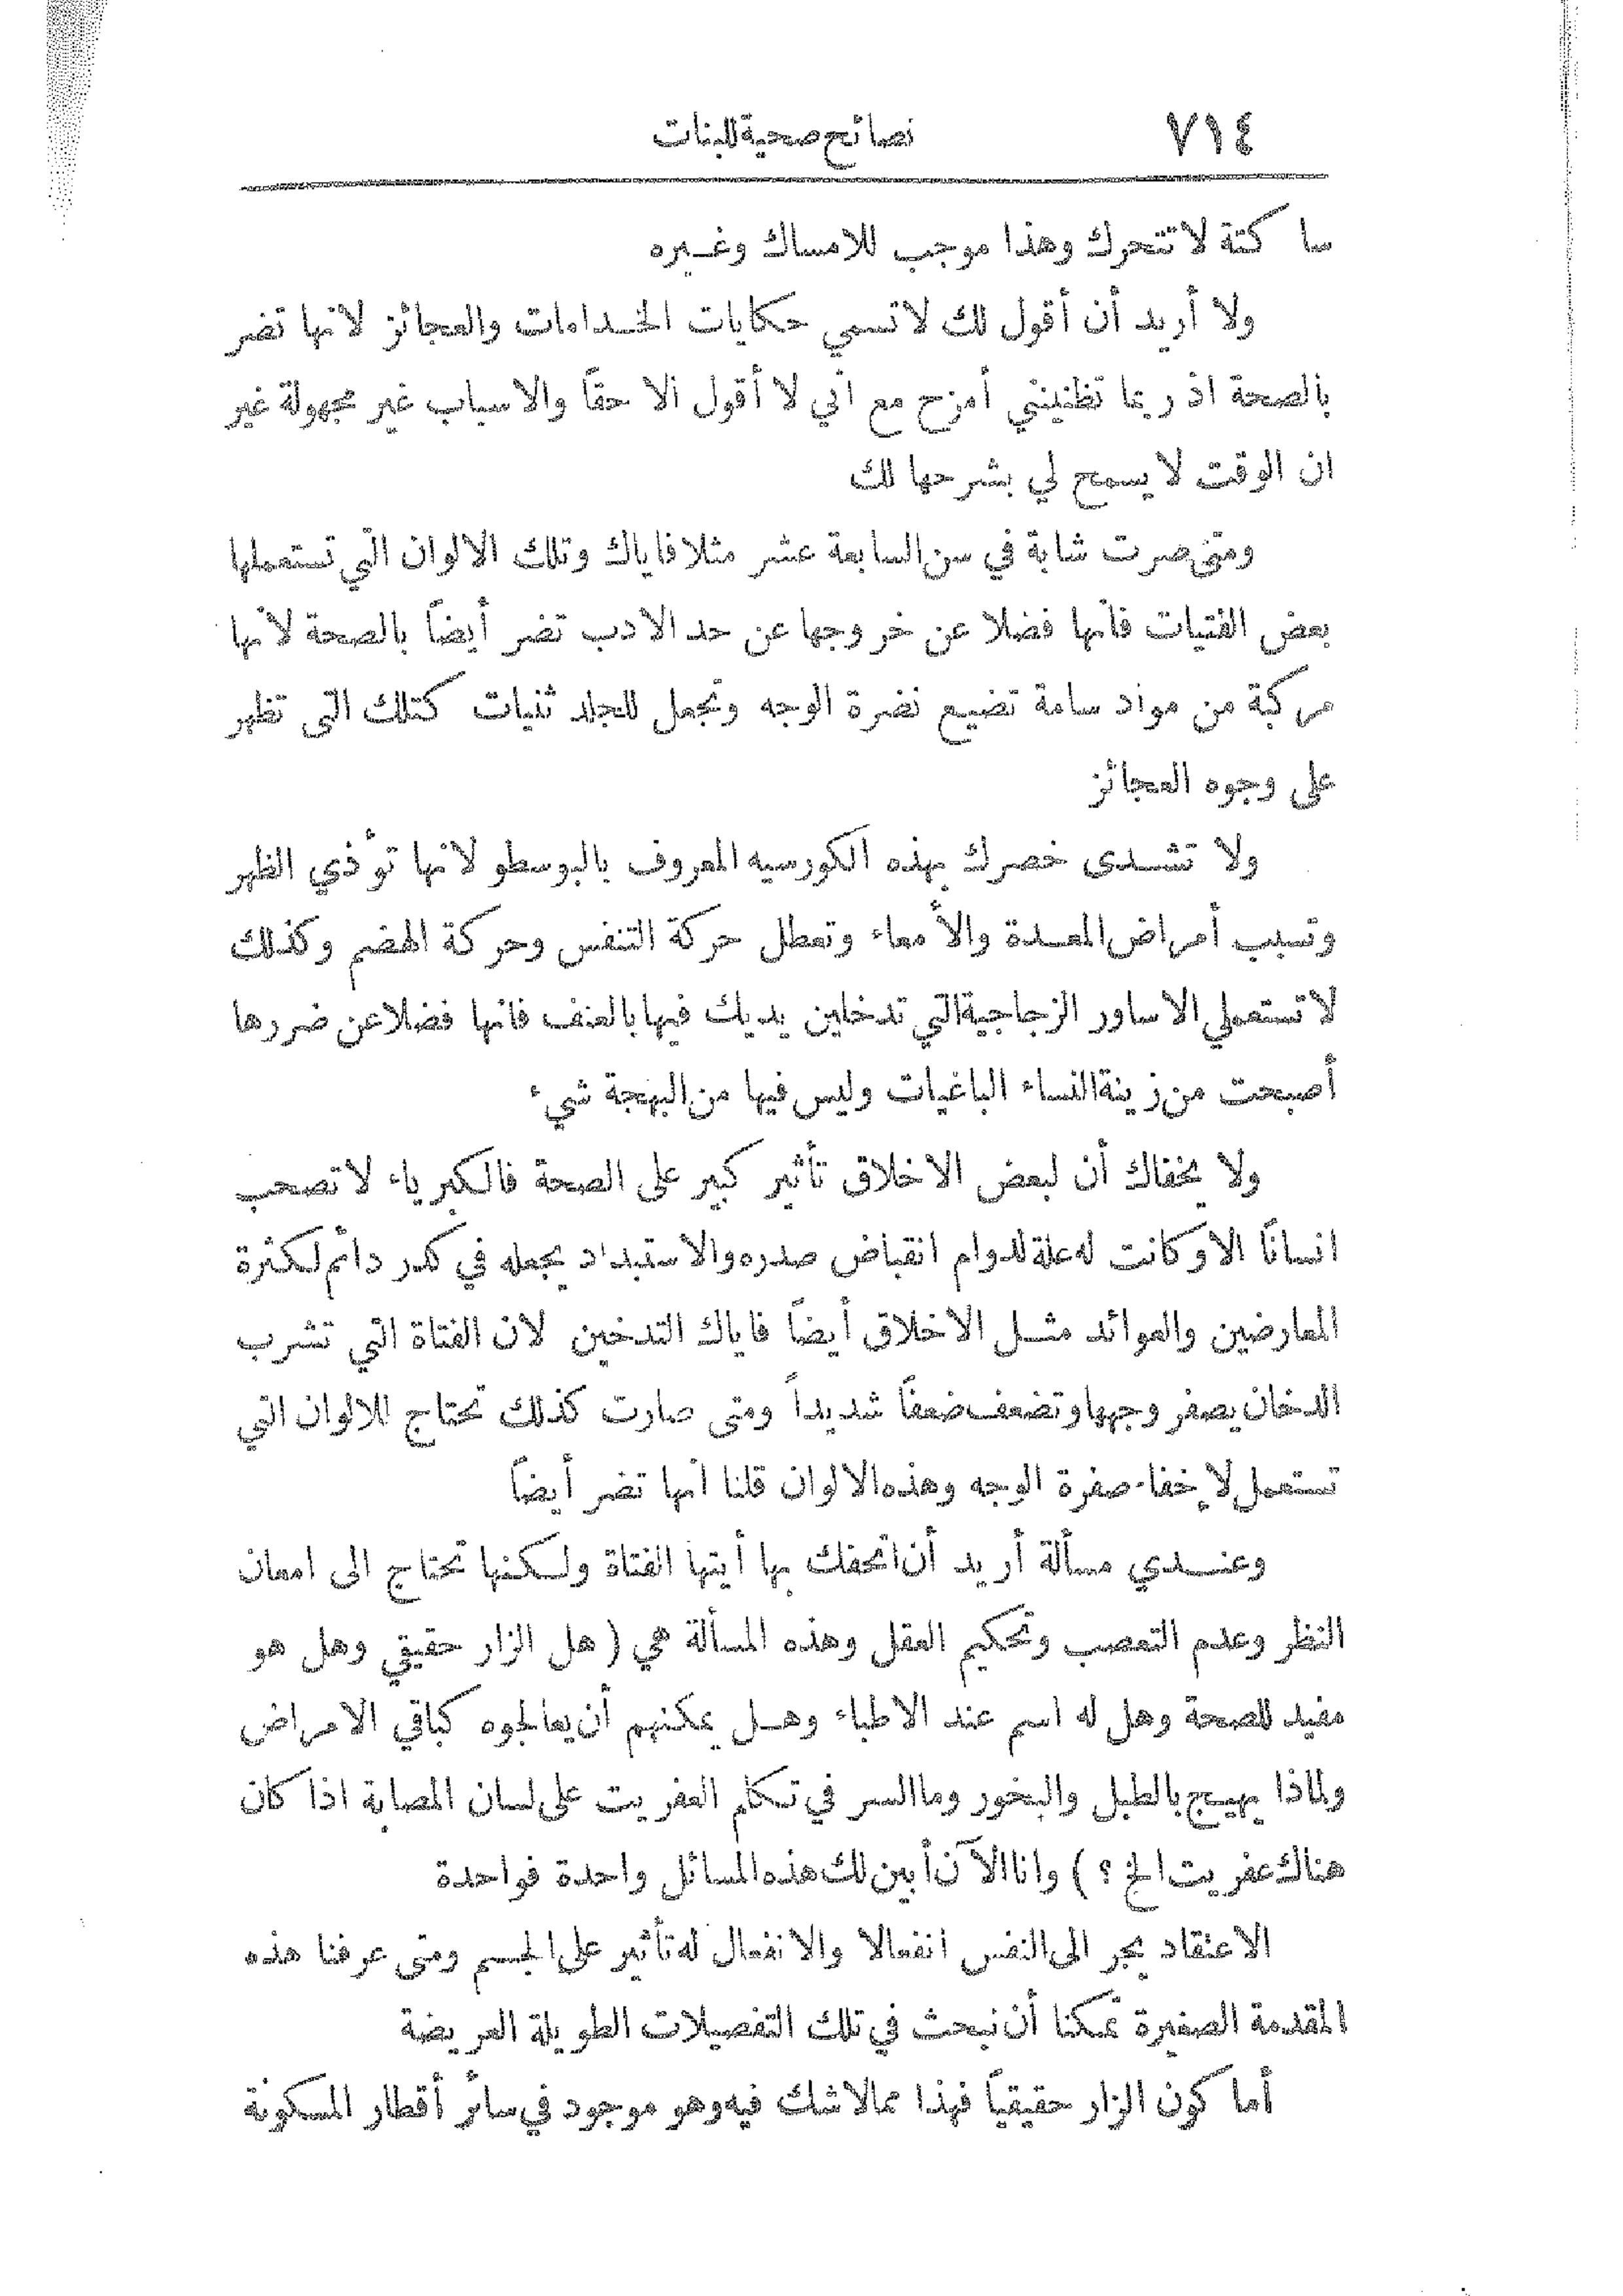 ٧١٤ نصائح صحية للبنات
ساكتة لا تتحرك وهذا موجب للامساك وغيره
ولا أريد أن أقول لك لا تسمي حكايات الخدامات والعجائز لانها تضر
بالصحة اذ ربما تظنينني أمزح مع اني لا أقول الا حقاً والاسباب غير مجهولة غير
ان الوقت لا يسمح لي بشرحها لك
ومتى صرت شابة في سن السابعة عشر مثلا فاياك وتلك الالوان التي تستعملها
بعض الفتيات فانها فضلا عن خروجها عن حد الادب تضر أيضاً بالصحة لانها
مركبة من مواد سامة تضيع نضرة الوجه وتجعل للجلد ثنيات كتلك التى تظهر
على وجوه العجائز
ولا تشدى خصرك بهذه الكورسيه المعروف بالبوسطو لانها تؤذي الظهر
وتسبب أمراض المعدة والأمعاء وتعطل حركة التنفس وحركة الهضم وكذلك
لا تستعملي الاساور الزجاجية التي تدخلين يديك فيها بالعنف فانها فضلا عن ضررها
أصبحت من زينة النساء الباغيات وليس فيها من البهجة شيء
ولا يخفاك أن لبعض الاخلاق تأثير كبير على الصحة فالكبرياء لا تصحب
انسانًا الا وكانت له علة لدوام انقباض صدره والاستبداد يجعله في كدر دائم لكثرة
المعارضين والعوائد مثل الاخلاق أيضاً فاياك التدخين لان الفتاة التي تشرب
الدخان يصفر وجهها وتضعف ضعفًا شديداً ومتى صارت كذلك تحتاج للالوان التي
تستعمل لإخفاء صفرة الوجه وهذه الالوان قلنا انها تضر أيضاً
وعندي مسألة أريد أن اتحفك بها أيتها الفتاة ولكنها تحتاج الى امعان
النظر وعدم التعصب وتحكيم العقل وهذه المسألة هي ( هل الزار حقيقي وهل هو
مفيد للصحة وهل له اسم عند الاطباء وهل يمكنهم أن يعالجوه كباقي الامراض
ولماذا يهيج بالطبل والبخور وما السر في تكلم العفريت على لسان المصابة اذا كان
هناك عفريت الخ ؟ ) وانا الآن أبين لك هذه المسائل واحدة فواحدة
الاعتقاد يجر الى النفس انفعالا والانفعال له تأثير على الجسم ومتى عرفنا هذه
المقدمة الصغيرة تمكنا أن نبحث في تلك التفصيلات الطويلة العريضة
أما كون الزار حقيقياً فهذا مما لا شك فيه وهو موجود في سائر أقطار المسكونة